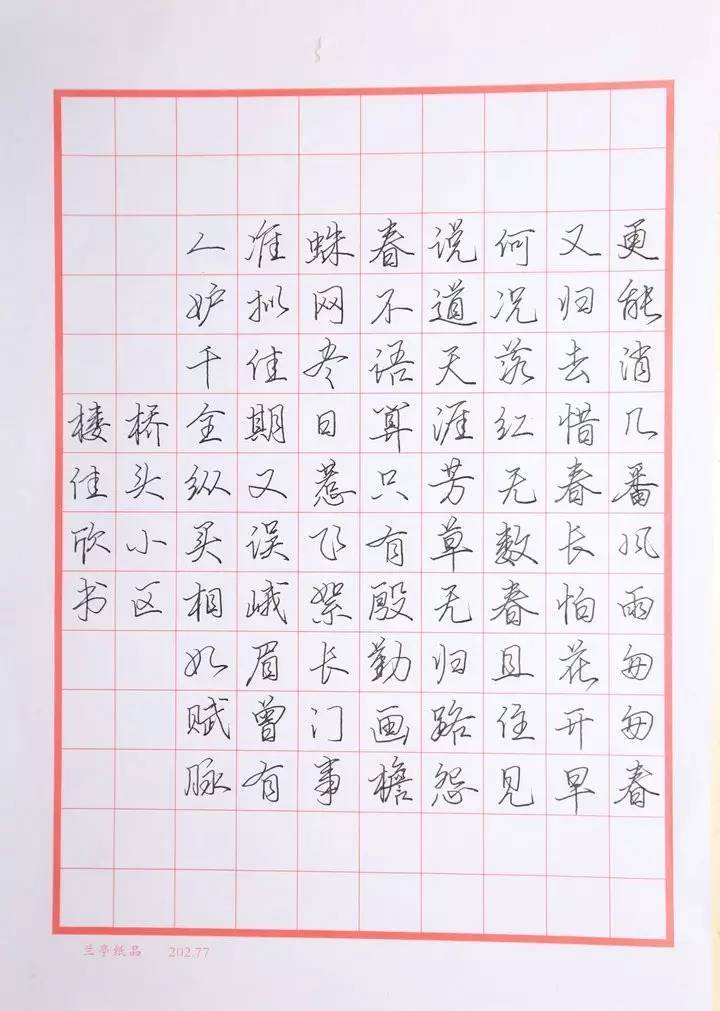 更能消几番风雨匆匆春
又归去惜春长怕花开早
何况落红无数春且住见
说道天涯芳草无归路怨
春不语算只有殷勤画檐
蛛网尽日惹飞絮长门事
准拟佳期又误峨眉曾有
人妒千金纵买相如赋脉
桥头小区
楼佳欣书
兰亭纸品 202.77